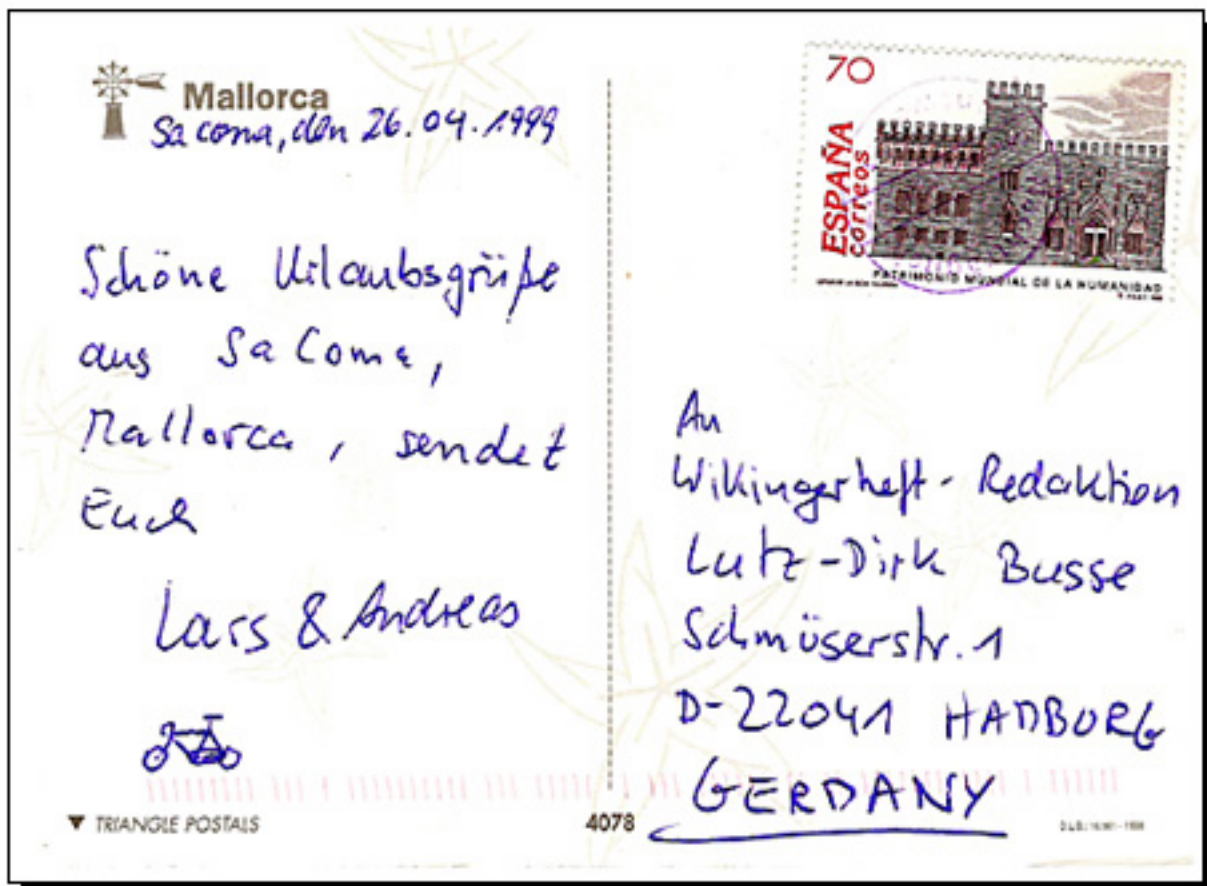 Mallorca
Sa coma, den 26.04.1999
Schöne Urlaubsgrüße
aus Sa Coma,
Mallorca, sendet
Euch
Lars & Andreas
TRIANGLE POSTALS
4078
70
ESPAÑA
correos
PATRIMONIO MUNDIAL DE LA HUMANIDAD
An
Wikingerheft-Redaktion
Lutz-Dirk Busse
Schmüserstr. 1
D-22041 HAMBURG
GERMANY